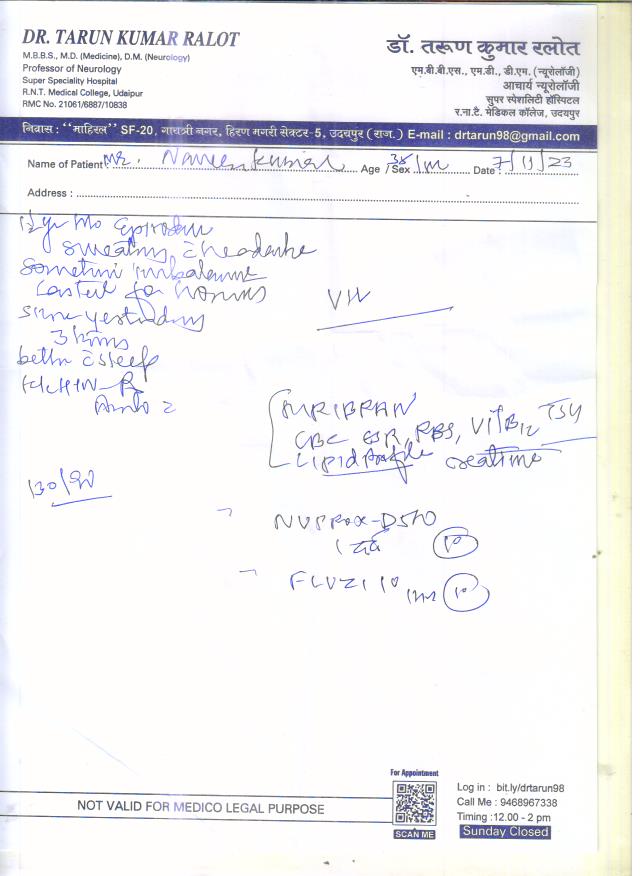 DR. TARUN KUMAR RALOT
M.B.B.S., M.D. (Medicine), D.M. (Neurology)
Professor of Neurology
Super Speciality Hospital
R.N.T. Medical College, Udaipur
RMC No. 21061/6887/10838
डॉ. तरूण कुमार रलोत
एम.बी.बी.एस., एम.डी., डी.एम. (न्यूरोलॉजी)
आचार्य न्यूरोलॉजी
सुपर स्पेशलिटी हॉस्पिटल
र.ना.टै. मेडिकल कॉलेज, उदयपुर
निवास : "माहिरल" SF-20, गायत्री नगर, हिरण मगरी सेक्टर-5, उदयपुर (राज.) E-mail : drtarun98@gmail.com
Name of Patient Mr. Naveen kumar Age / Sex 38/m Date : 7/11/23
Address :
sweating c headache
Sometimes imbalance
Lasted for hours
since yesterday
better c sleep
MRI BRAIN
CBC ESR, RBS, VITB12 TSH
Lipid profile creatinine
130/90
1 दर्द 10
10
For Appointment
SCAN ME
NOT VALID FOR MEDICO LEGAL PURPOSE
Log in : bit.ly/drtarun98
Call Me : 9468967338
Timing :12.00 - 2 pm
Sunday Closed